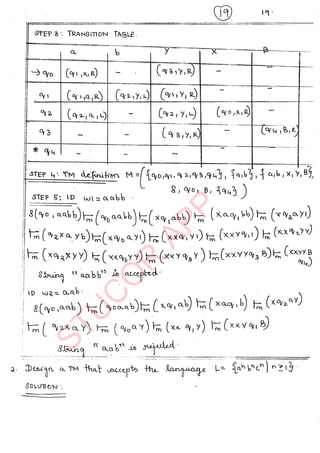 19 19.
STEP 3: TRANSITION TABLE.
a b Y X B
→q0 (q1,X,R) - (q3,Y,R) - -
q1 (q1,a,R) (q2,Y,L) (q1,Y,R) - -
q2 (q2,a,L) - (q2,Y,L) (q0,X,R) -
q3 - - (q3,Y,R) - (q4,B,R)
* q4 - - - - -
STEP 4: TM definition M = ({q0,q1,q2,q3,q4}, {a,b}, {a,b,X,Y,B},
δ, q0, B, {q4})
STEP 5: ID w1 = aabb
δ(q0, aabb) ⊢m (q0aabb) ⊢m (xq1abb) ⊢m (xaq1bb) ⊢m (xq2aYb)
⊢m (q2xaYb) ⊢m (xq0aYb) ⊢m (xxq1Yb) ⊢m (xxYq1b) ⊢m (xxq2YY)
⊢m (xq2XYY) ⊢m (xxq0YY) ⊢m (xxYq3Y) ⊢m (xxYYq3B) ⊢m (xxYYBq4)
String "aabb" is accepted.
ID w2 = aab.
δ(q0,aab) ⊢m (q0aab) ⊢m (xq1ab) ⊢m (xaq1b) ⊢m (xq2aY)
⊢m (q2XaY) ⊢m (xq0aY) ⊢m (xxq1Y) ⊢m (xxYq1B)
String "aab" is rejected.
STUCOR APP
2. Design a TM that accepts the language L = {aⁿbⁿcⁿ | n≥1}.
SOLUTION:.